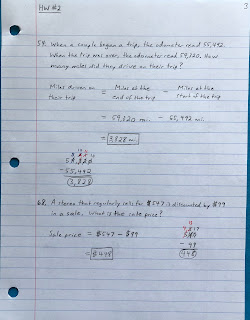 HW #2
3
54. When a couple began a trip, the odometer read 55,492.
When the trip was over, the odometer read 59,320. How
many miles did they drive on their trip?
Miles driven on = Miles at the - Miles at the
their trip end of the trip start of the trip
= 59,320 mi. - 55,492 mi.
= 3,828 mi.
59,320
- 55,492
3,828
68. A stereo that regularly sells for $547 is discounted by $99
in a sale. What is the sale price?
Sale price = $547 - $99
= $448
547
- 99
448